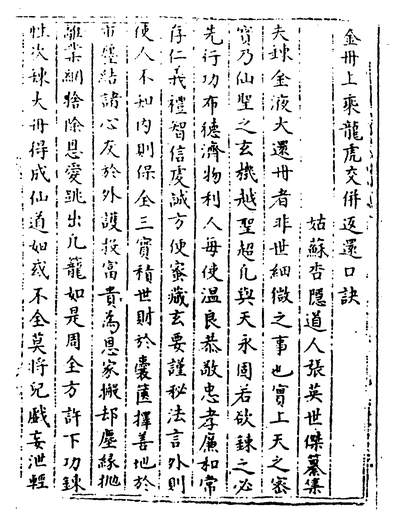 金丹上乘龍虎交併返還口訣
姑蘇杏隱道人張英世傑纂集
夫鍊金液大還丹者非世細微之事也實上天之密
寶乃仙聖之玄機越聖超凡與天永固若欲鍊之必
先行功布德濟物利人毋使溫良恭敬忠孝廉和常
存仁義禮智信度誠方便密藏玄要謹秘法言外則
使人不知內則保全三寶積世財於囊篋擇善地於
市壁結諸心友於外護投富貴為恩家搬却塵緣拋
離業網捨除恩愛跳出凡籠如是周全方許下功鍊
性次鍊大丹得成仙道如或不全莫將兒戲妄泄輕